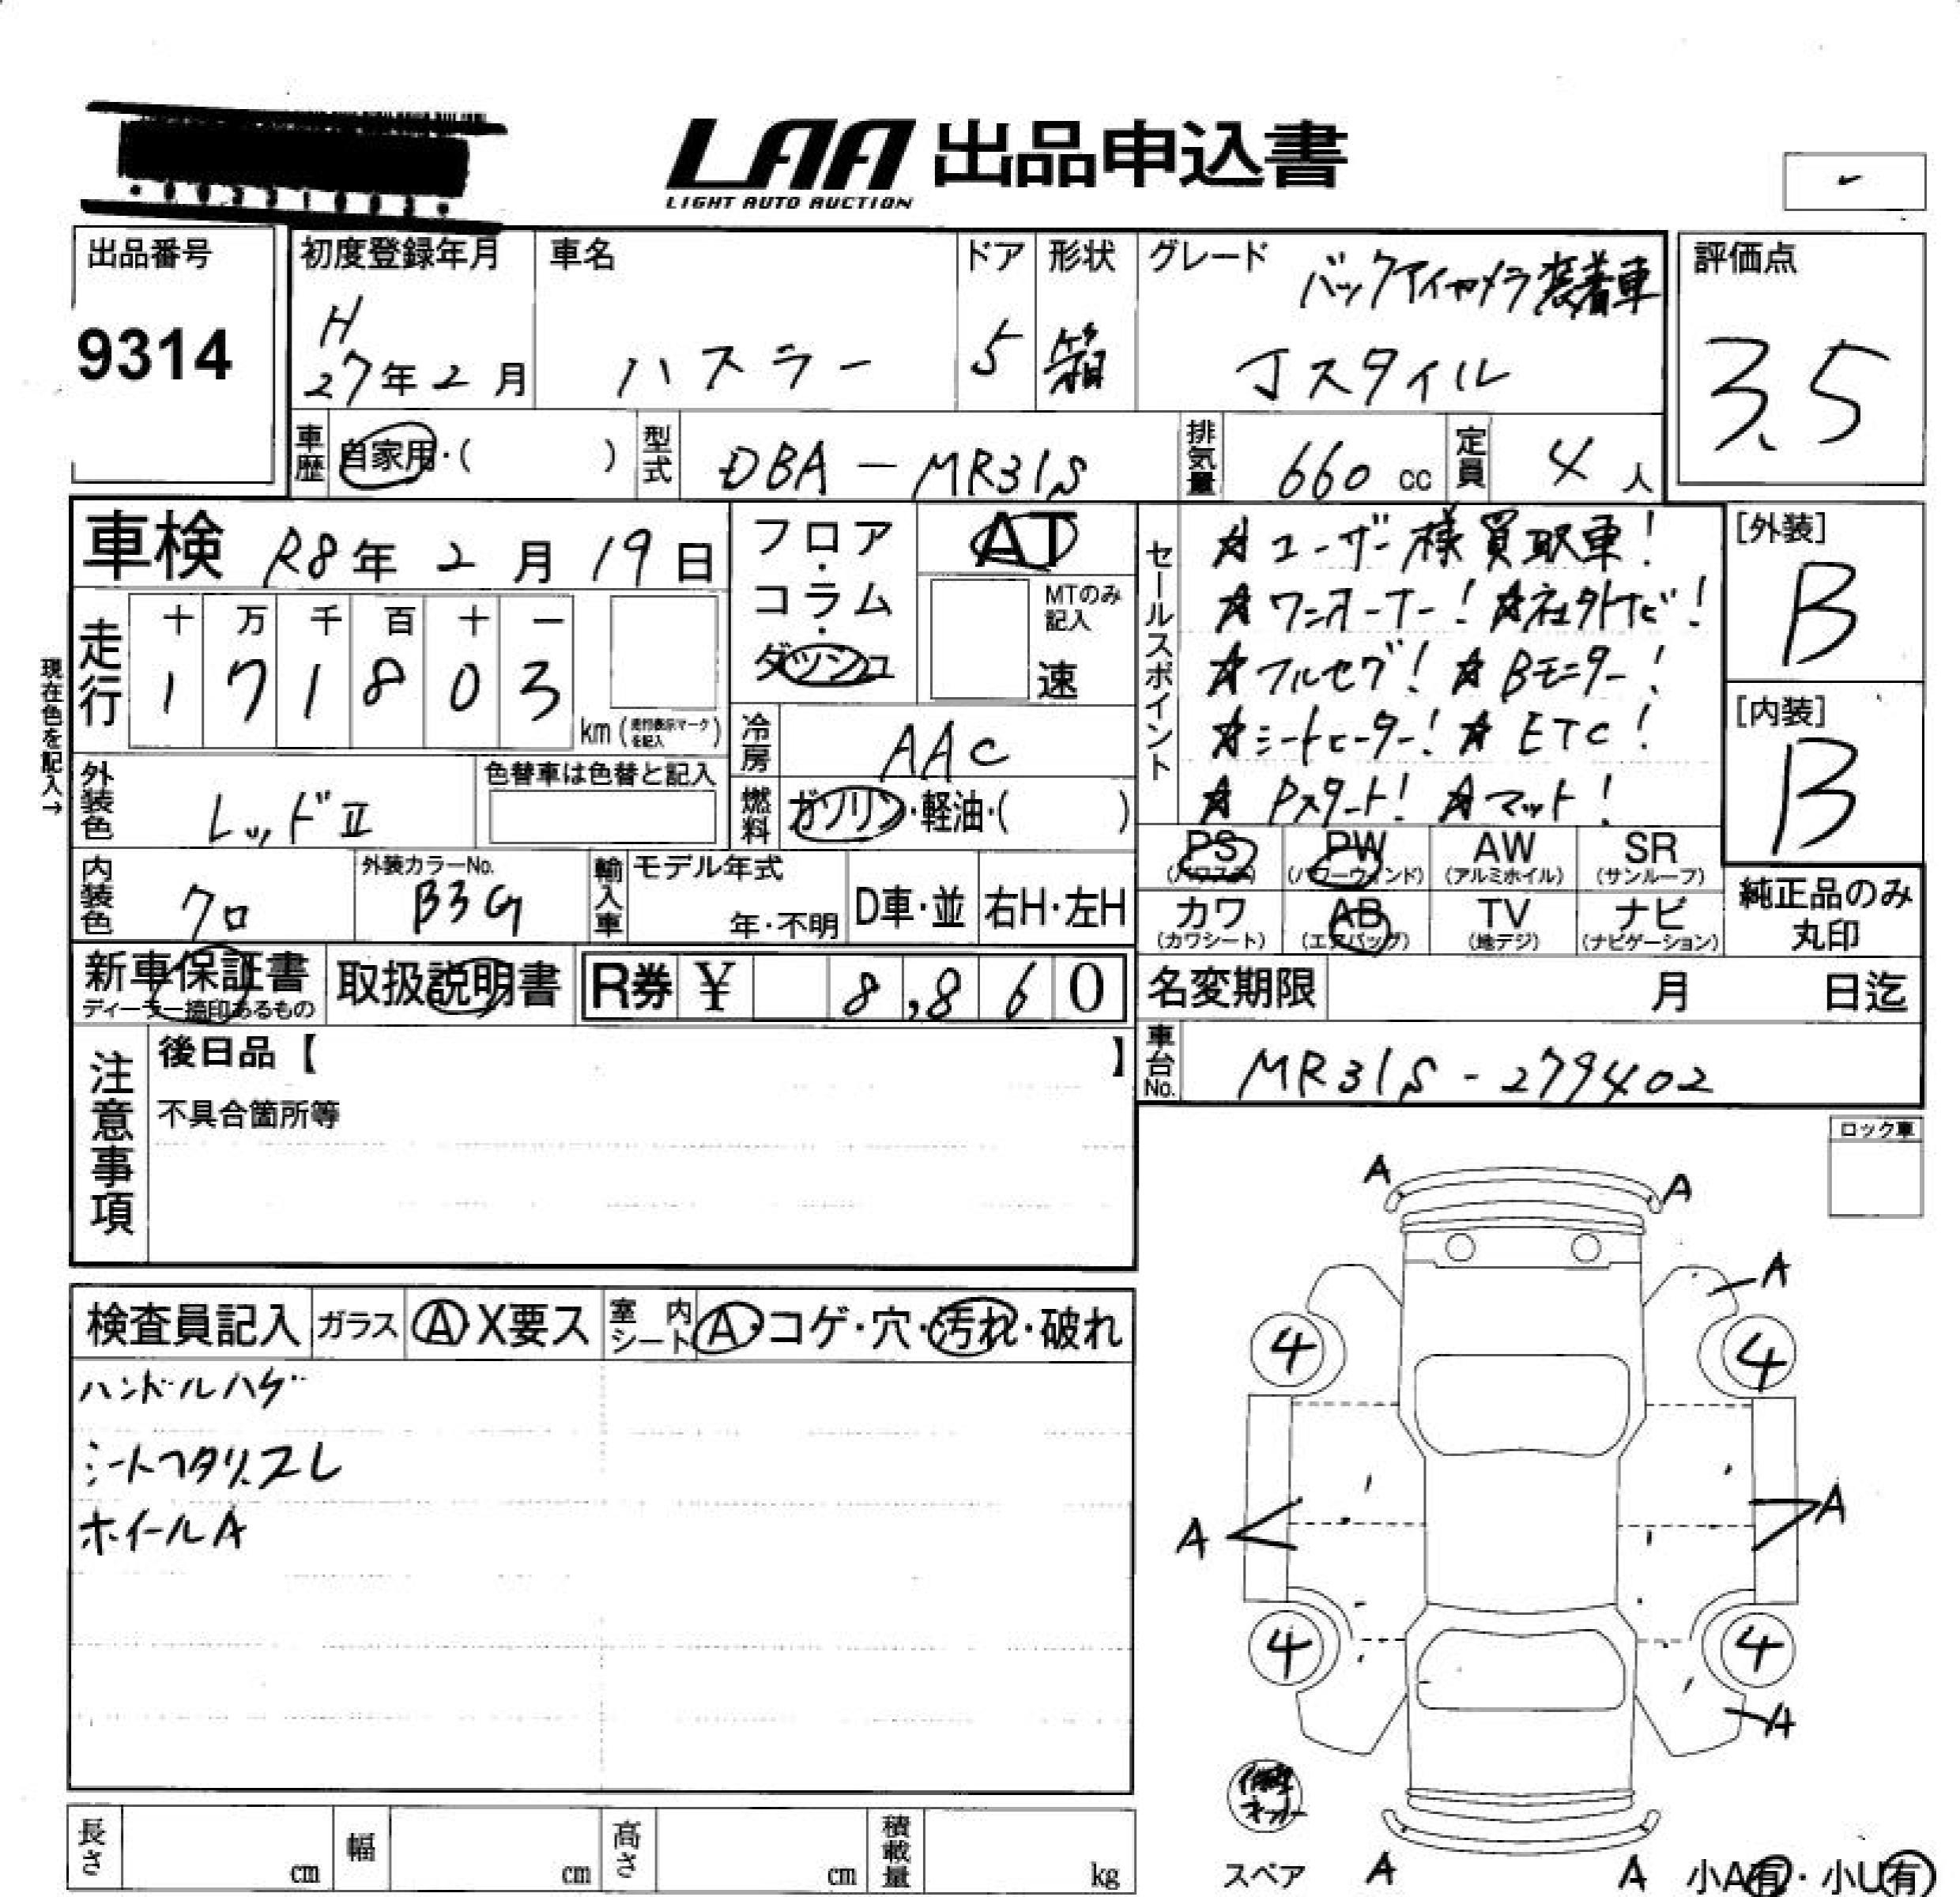 LAA 出品申込書
LIGHT AUTO AUCTION
出品番号
9314
初度登録年月
H
27年2月
車名
ハスラー
ドア
5
形状
箱
グレード
バックアイカメラ装着車
Jスタイル
評価点
3.5
車歴
自家用・( )
型式
DBA-MR31S
排気量
660 cc
定員
4人
車検 R8年2月19日
現在色を記入→
走行
十 万 千 百 十 一
1 7 1 8 0 3
km (走行表示マークを記入)
フロア・コラム・ダッシュ
AT
MTのみ記入
速
冷房
AAC
燃料
ガソリン・軽油・( )
外装色
レッドⅡ
色替車は色替と記入
内装色
クロ
外装カラーNo.
B3G
輸入車
モデル年式
年・不明
D車・並
右H・左H
セールスポイント
☆ユーザー様買取車!
☆ワンオーナー! ☆社外ナビ!
☆フルセグ! ☆Bモニター!
☆シートヒーター! ☆ETC!
☆Pスタート! ☆マット!
[外装]
B
[内装]
B
PS
(パワステ)
PW
(パワーウィンド)
AW
(アルミホイル)
SR
(サンルーフ)
カワ
(カワシート)
AB
(エアバッグ)
TV
(地デジ)
ナビ
(ナビゲーション)
純正品のみ
丸印
新車保証書
ディーラー捺印あるもの
取扱説明書
R券 ¥ 8,860
名変期限 月 日迄
車台No.
MR31S-279402
注意事項
後日品【 】
不具合箇所等
ロック車
検査員記入
ガラス
A X要ス
室内シート
A・コゲ・穴・汚れ・破れ
ハンドルハゲ
シートヘタリ、スレ
ホイールA
A
A
A
4
4
A
A
4
4
A
スペア
A
A
小A有・小U有
長さ cm
幅 cm
高さ cm
積載量 kg